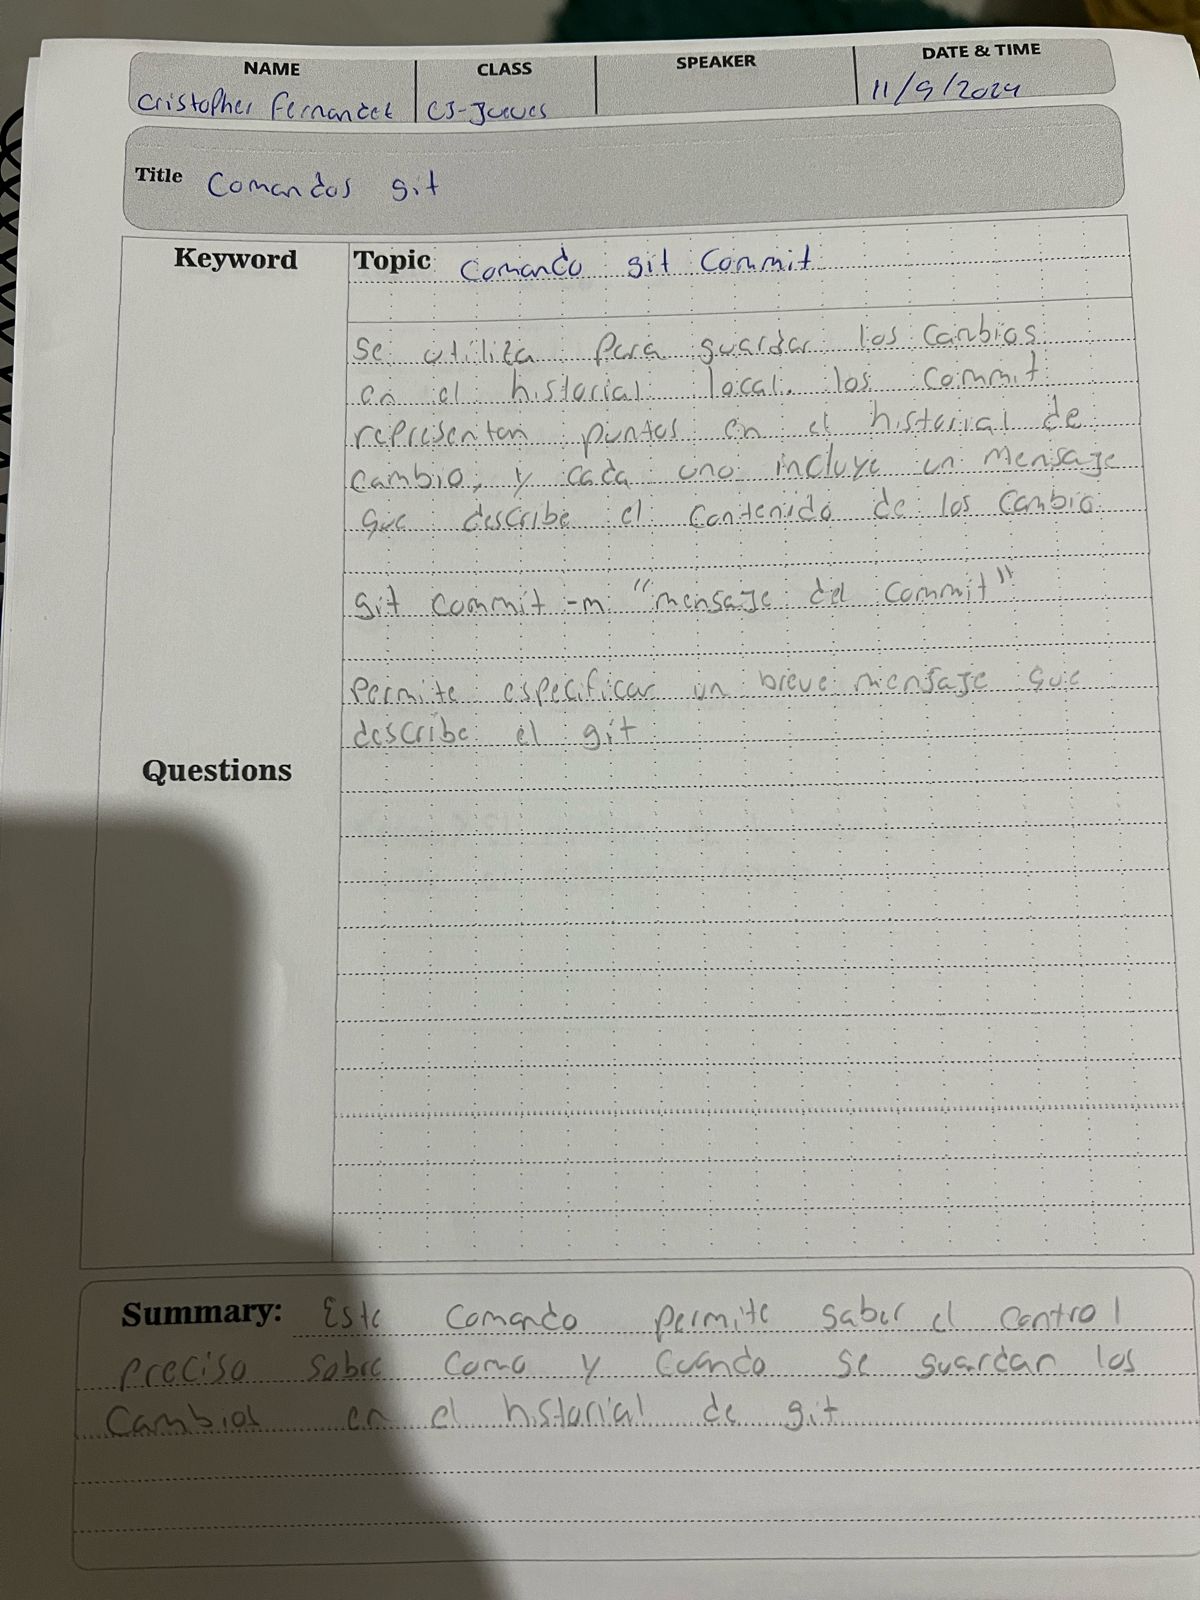 NAME CLASS SPEAKER DATE & TIME
Cristopher Fernandez CJ-Jueves 11/9/2024
Title Comandos git
Keyword Topic Comando git Commit
Se utiliza para guardar los cambios
en el historial local. los commit
representan puntos en el historial de
cambio, y cada uno incluye un mensaje
que describe el contenido de los cambio
git commit -m "mensaje del commit"
Permite especificar un breve mensaje que
describe el git
Questions
Summary: Este comando permite saber el control
preciso sobre como y cuando se guardan los
cambios en el historial de git